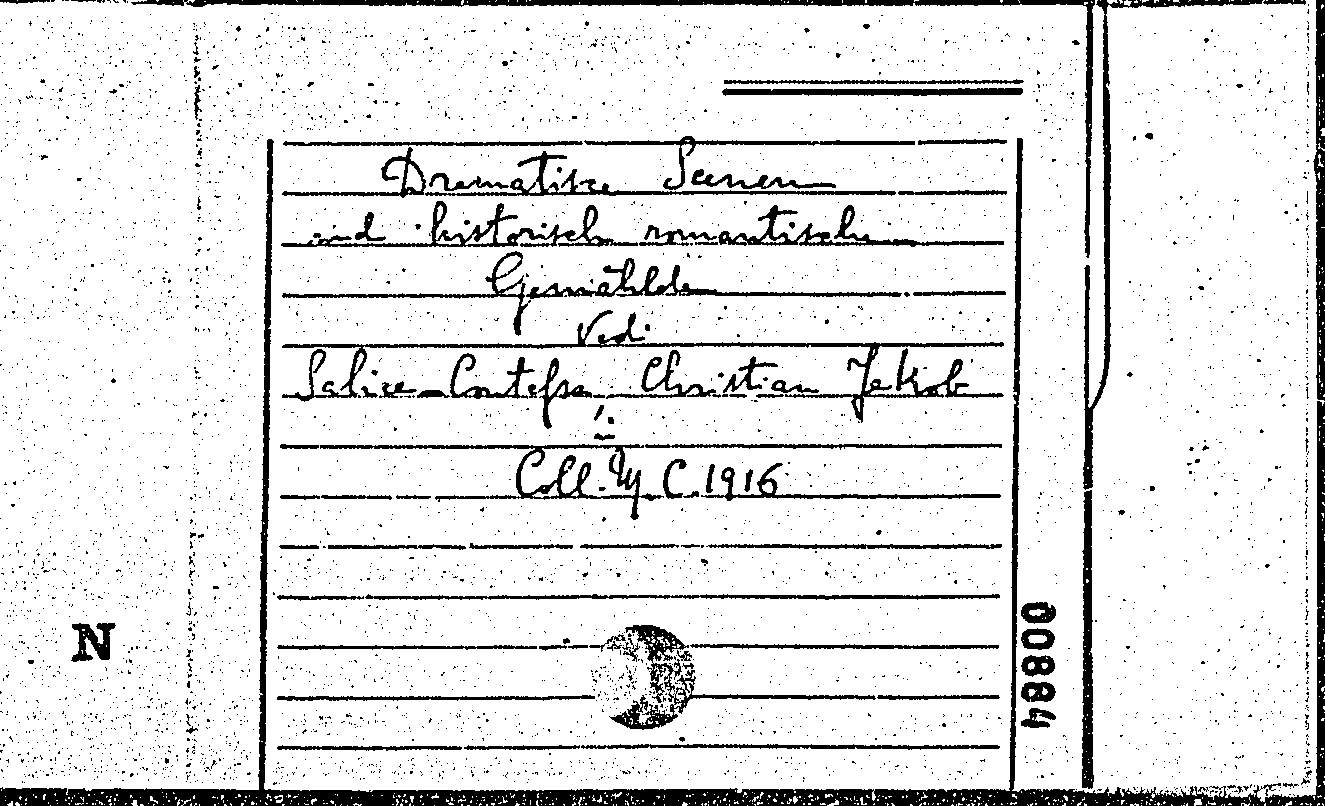 Dramatisce Scenen
und historisch romantische
Gemählde
Vedi
Salice-Contessa, Christian Jakob
Coll. M. C. 1916
N
00884